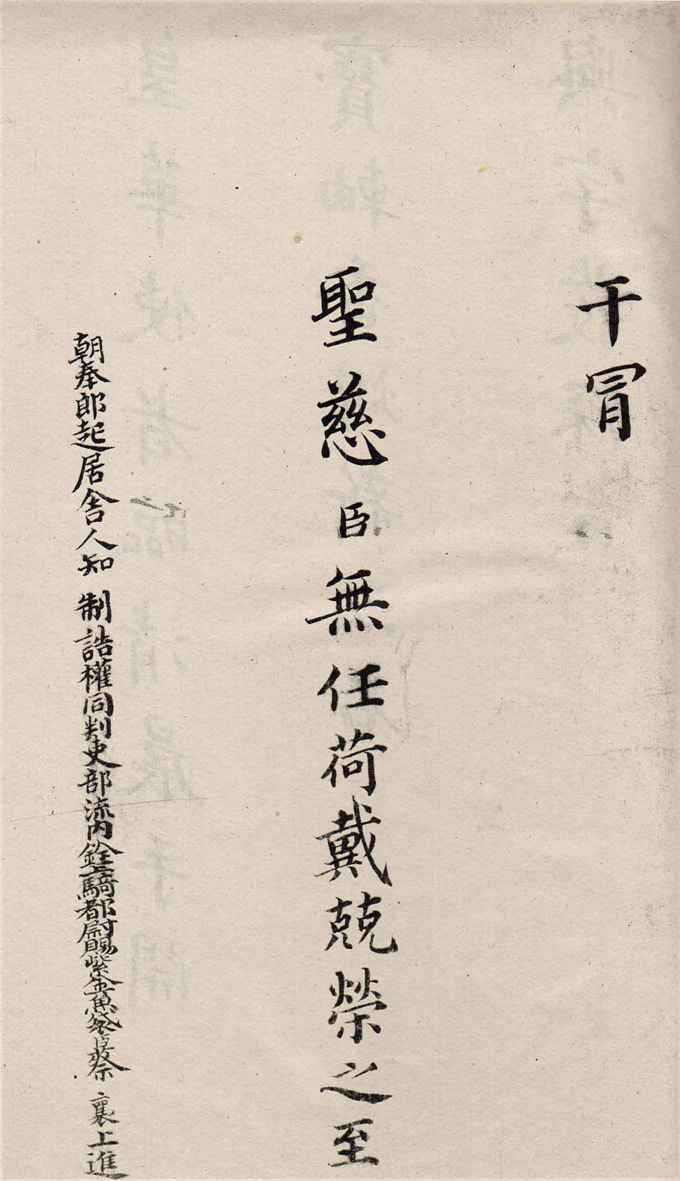 干冒
聖慈臣無任荷戴兢榮之至
朝奉郎起居舍人知 制誥權同判吏部流內銓騎都尉賜紫金魚袋臣蔡 襄上進